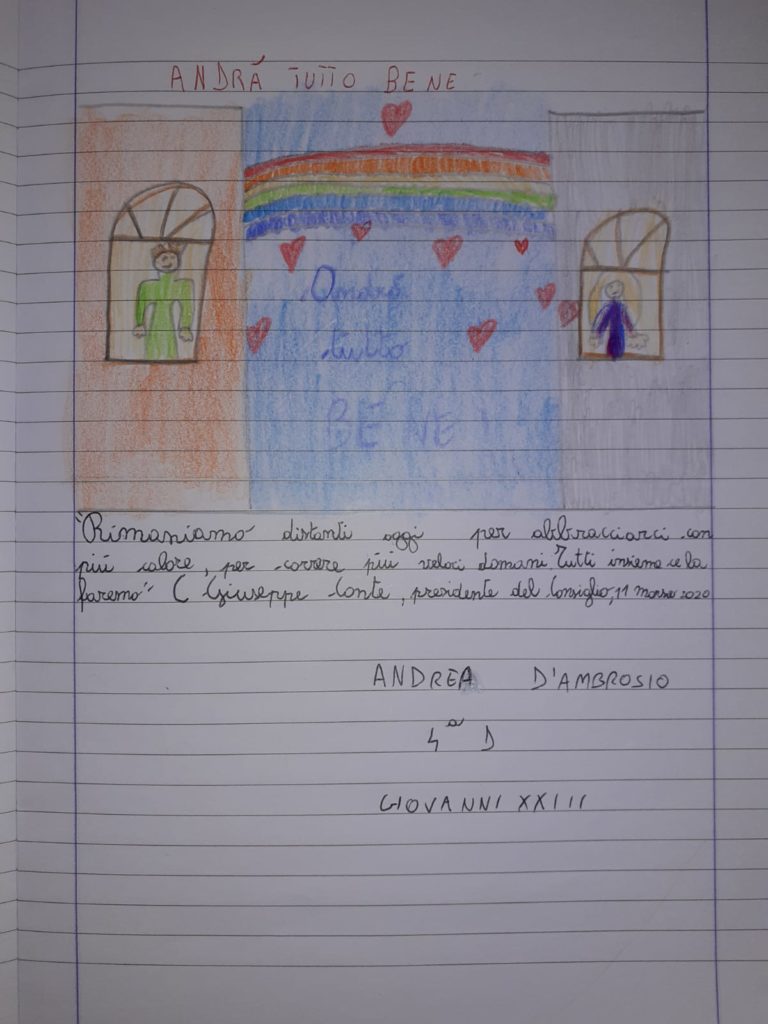 ANDRÁ TUTTO BENE
Andrá
tutto
BÉNE
"Rimaniamo distanti oggi per abbracciarci con
più calore, per correre più veloci domani. Tutti insieme ce la
faremo" (Giuseppe Conte, presidente del Consiglio, 11 marzo 2020
ANDREA D'AMBROSIO
4ª D
GIOVANNI XXIII